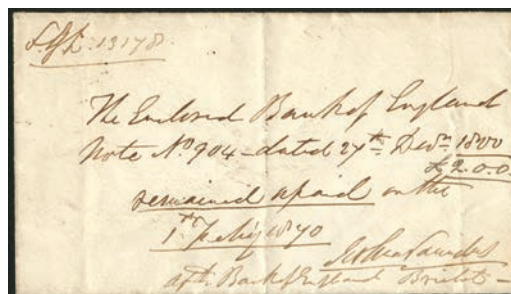 13178.
The Enclosed Bank of England
Note No. 904 - dated 27th Decr. 1800
£2.0.0
remained upaid on the
1st Feby 1870
Saunders
of the Bank of England Bristol -